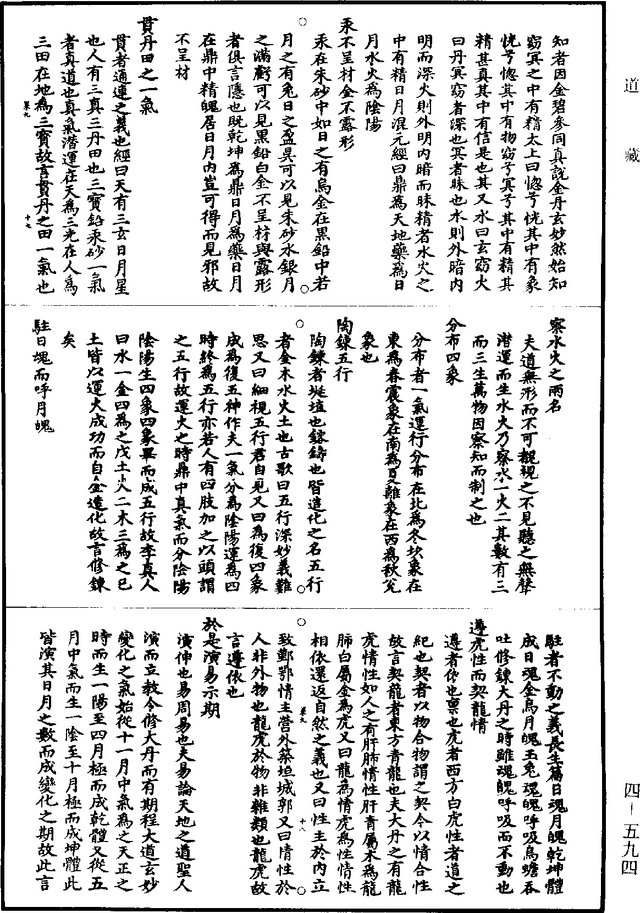 道藏
知者因金碧參同真說金丹玄妙然始知
窈冥之中有精太上曰惚兮恍其中有象
恍兮惚其中有物窈兮冥兮其中有精其
精甚真其中有信是也其又水曰玄窈火
曰丹冥窈者深也冥者昧也水則外暗內
明而深火則外明內暗而昧精者水火之
中有精日月混元經曰鼎為天地藥為日
月水火為陰陽
汞不呈材金不露形
汞在朱砂中如日之有烏金在黑鉛中若
月之有兔日之盈昃可以見朱砂水銀月
之滿虧可以見黑鉛白金不呈材與露形
者俱言隱也既乾坤為鼎日月為藥日月
在鼎中精魄居日月內豈可得而見邪故
不呈材
貫丹田之一氣
貫者通運之義也經曰天有三玄日月星
也人有三真三丹田也三寶鉛汞砂一氣
者真道也真氣潛運在天為三光在人為
三田在地為三寶故言貫丹之田一氣也
察水火之兩名
夫道無形而不可覩視之不見聽之無聲
潛運而生水火乃察水一火二其數有三
而三生萬物因察知而制之也
分布四象
分布者一氣運行分布在北為冬坎象在
東為春震象在南為夏離象在西為秋兌
象也
陶鍊五行
陶鍊者埏埴也鎔鑄也皆造化之名五行
者金木水火土也古歌曰五行深妙義難
思又曰細視五行君自見又曰為復四象
成為復五神作夫一氣分為陰陽運為四
時終為五行亦若人有四肢加之以頭謂
之五行故運火之時鼎中真氣而分陰陽
陰陽生四象四象畢而成五行故李真人
曰水一金四為之戊土火二木三為之已
土皆以運火成功而自全造化故言修鍊
矣
駐日魂而呼月魄
駐者不動之義長生篇日魂月魄乾坤體
成日魂金烏月魄玉兔魂魄呼吸烏蟾吞
吐修鍊大丹之時雖魂魄呼吸而不動也
遵虎性而契龍情
遵者依也稟也虎者西方白虎性者道之
紀也契者以物合物謂之契令以情合性
故言契龍者東方青龍也夫大丹之有龍
虎情性如人之有肝肺情性肝青屬木為龍
肺白屬金為虎又曰龍為情虎為性情性
相依還返自然之義也又曰性主於內立
致鄞鄂情主營外築垣城郭又曰情性於
人非外物也龍虎於物非雜類也龍虎故
言遵依也
於是演易示期
演伸也易周易也夫易論天地之道聖人
演而立教令修大丹而有期程大道玄妙
變化之氣始從十一月中氣為之天正之
時而生一陽至四月極而成乾體又從五
月中氣而生一陰至十月極而成坤體此
皆演其日月之數而成變化之期故此言
四—五九四